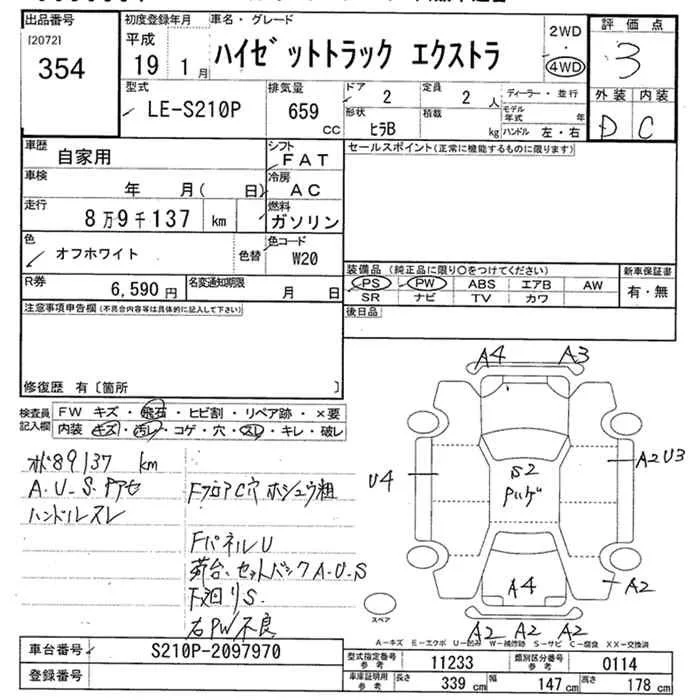 出品番号
[2072]
354
初度登録年月
平成
19 1月
車名・グレード
ハイゼットトラック エクストラ
2WD
・
4WD
評価点
3
外装 内装
D C
型式
LE-S210P
排気量
659
cc
ドア
2
定員
2人
形状
ヒラB
積載
kg
ディーラー・並行
モデル年式 年
ハンドル 左・右
車歴
自家用
シフト
FAT
車検
年 月( 日)
冷房
AC
走行
8万9千137 km
燃料
ガソリン
色
オフホワイト
色替
色コード
W20
R券
6,590円
名変通知期限
月 日
セールスポイント(正常に機能するものに限ります)
装備品 (純正品に限り○をつけてください)
PS PW ABS エアB AW
SR ナビ TV カワ
新車保証書
有・無
後日品
注意事項申告欄(不具合内容等は具体的に記入して下さい)
修復歴 有〔箇所 〕
検査員記入欄
FW キズ・飛石・ヒビ割・リペア跡・×要
内装・キズ・汚レ・コゲ・穴・スレ・キレ・破レ
メーター89137 km
A.U.S.
ハンドルスレ
FフロアC穴ホシュウ粗
FパネルU
荷台、セットバックA.U.S
F廻リS.
右PW不良
A4 A3
U4
S2
ハゲ
A2U3
A4
A2
A2 A2 A2
スペア
A-キズ E-エクボ U-凹み W-補修跡 S-サビ C-腐食 XX-交換済
車台番号
S210P-2097970
登録番号
型式指定番号
参考
11233
類別区分番号
参考
0114
車庫証明用
参考
長さ
339 cm
幅
147 cm
高さ
178 cm